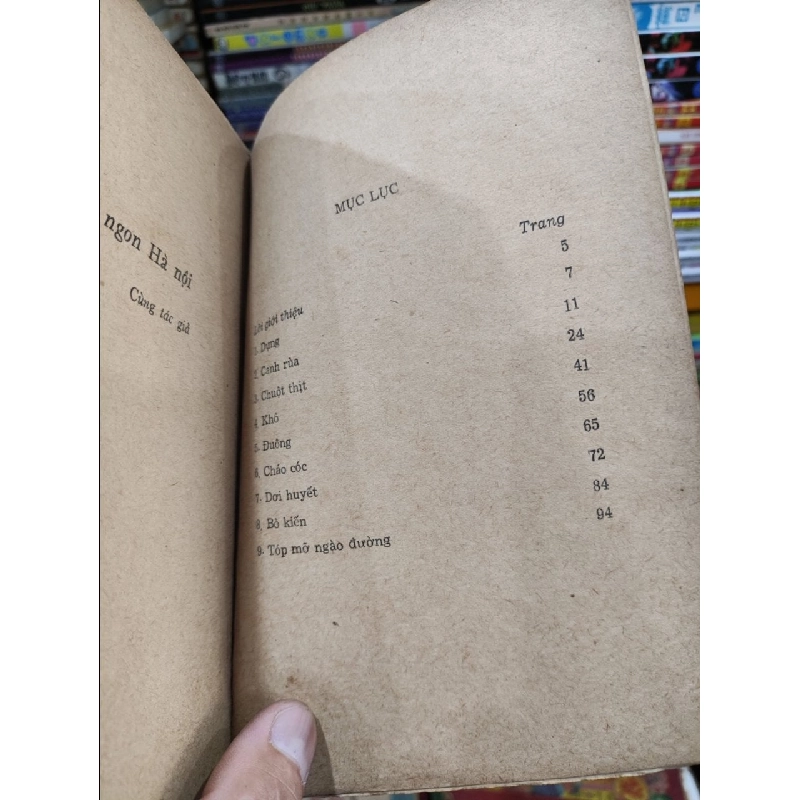 ngon Hà nội
Cùng tác giả
MỤC LỤC
Trang
Lời giới thiệu 5
1. Dọng 7
2. Canh rùa 11
3. Chuột thịt 24
4. Khô 41
5. Đuông 56
6. Cháo cóc 65
7. Dơi huyết 72
8. Bò kiến 84
9. Tóp mỡ ngào đường 94